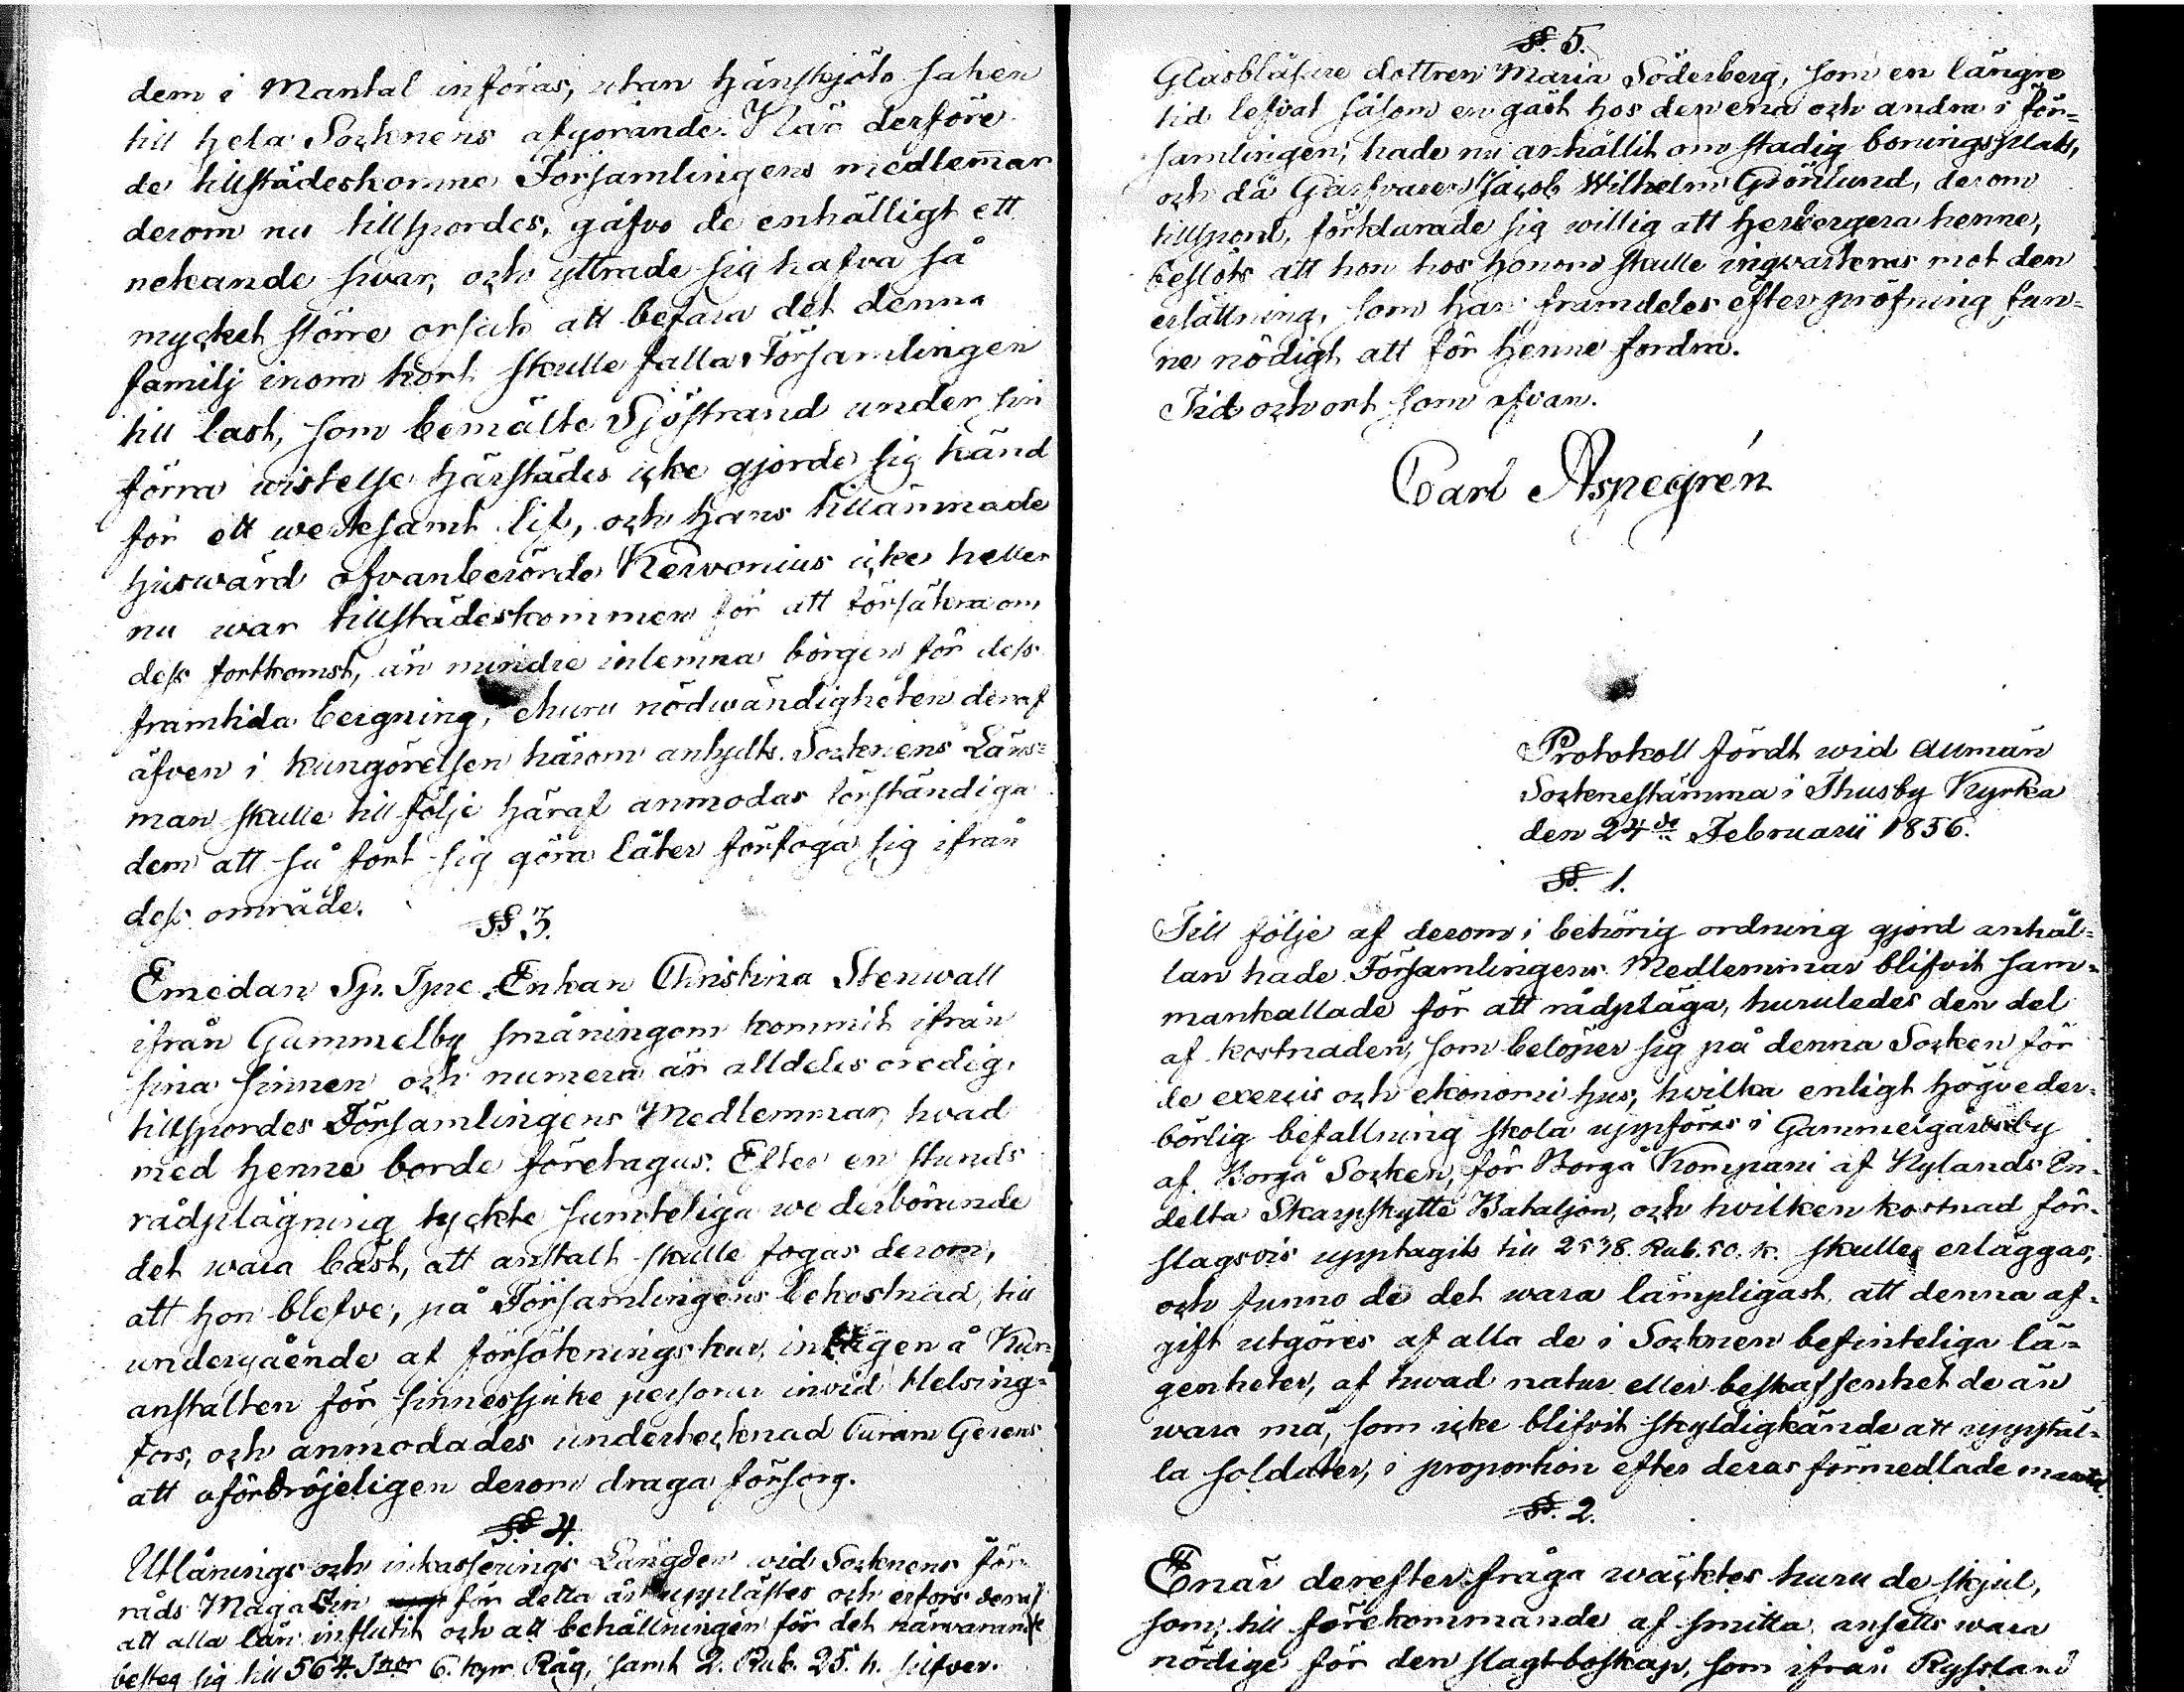 dem i Mantal införas, utan hänskjöto saken
till hela Socknens afgörande. När derföre
de tillstädeskomne Församlingens medlem̄ar
derom nu tillspordes, gåfvo de enhälligt ett
nekande svar, och yttrade sig hafva så
mycket större orsak att befara det denna
familj inom kort skulle falla Församlingen
till last, som bemälte Sjöstrand under sin
förra wistelse härstädes icke gjorde sig känd
för ett werksamt lif, och hans tillämnade
huswärd ofvanberörde Kervonius icke heller
nu war tillstädeskommen för att försäkra om
dess fortkomst, än mindre inlemna borgen för dess
framtida bergning, ehuru nödwändigheten deraf
äfven i kungörelsen härom antydts. Socknens Läns=
man skulle till följe häraf anmodas förständiga
dem att så fort sig göra låter förfoga sig ifrån
dess område.
§§ 3.
Emedan Sp. Tpre Enkan Christina Stenwall
ifrån Gammelby småningom kommit ifrån
sina sinnen och numera är alldeles oredig,
tillspordes Församlingens Medlemmar, hvad
med henne borde företagas. Efter en stunds
rådplägning tyckte samteliga wederbörande
det wara bäst, att anstalt skulle fogas derom,
att hon blefve, på Församlingens bekostnad, till
undergående af försökningskur, intagen å Kur=
anstalten för sinnessjuke personer invid Helsing=
fors, och anmodades undertecknad Curam Gerens
att ofördröjeligen derom draga försorg.
§§ 4.
Utlånings och inkasserings Längden wid Socknens För=
råds Magasin för detta år upplästes och erfors deraf
att alla lån influtit och att behållningen för det närvarande
besteg sig till 564. Tnor 6. kpr Råg, samt 2. Rub. 25. k. silfver.
§§. 5.
Glasblåsare dottren Maria Söderberg, som en längre
tid lefvat såsom en gäst hos den ena och andra i för=
samlingen, hade nu anhållit om stadig boningsplats,
och då Garfvaren Jacob Wilhelm Grönlund, derom
tillspord, förklarade sig willig att herbergera henne,
beslöts att hon hos honom skulle inqvarteras mot den
ersättning, som han framdeles efter pröfning fun=
ne nödigt att för henne fordra.
Tid och ort som ofvan.
Carl Aspegrén
Protokoll fördt wid allmän
Sockenestämma i Thusby Kyrka
den 24de Februarii 1856.
§§. 1.
Till följe af derom i behörig ordning gjord anhål=
lan hade Församlingens Medlemmar blifvit sam=
mankallade för att rådpläga, huruledes den del
af kostnaden, som belöper sig på denna Socken för
de exercis och ekonomi hus, hvilka enligt högveder=
börlig befallning skola uppföras i Gammelgårdsby
af Borgå Socken, för Borgå Kompani af Nylands In=
delta Skarpskytte Bataljon, och hvilken kostnad för=
slagsvis upptagits till 2538. Rub. 50. k. skulle erläggas,
och funno de det wara lämpligast, att denna af=
gift utgöres af alla de i Socknen befinteliga lä=
genheter, af hwad natur eller beskaffenhet de än
wara må, som icke blifvit skyldigkände att uppstäl=
la soldater, i proportion efter deras förmedlade mantal.
§§. 2.
Enär derefter fråga wäcktes huru de skjul,
som, till förekommande af smitta, ansetts wara
nödige för den slagtboskap, som ifrån Ryssland